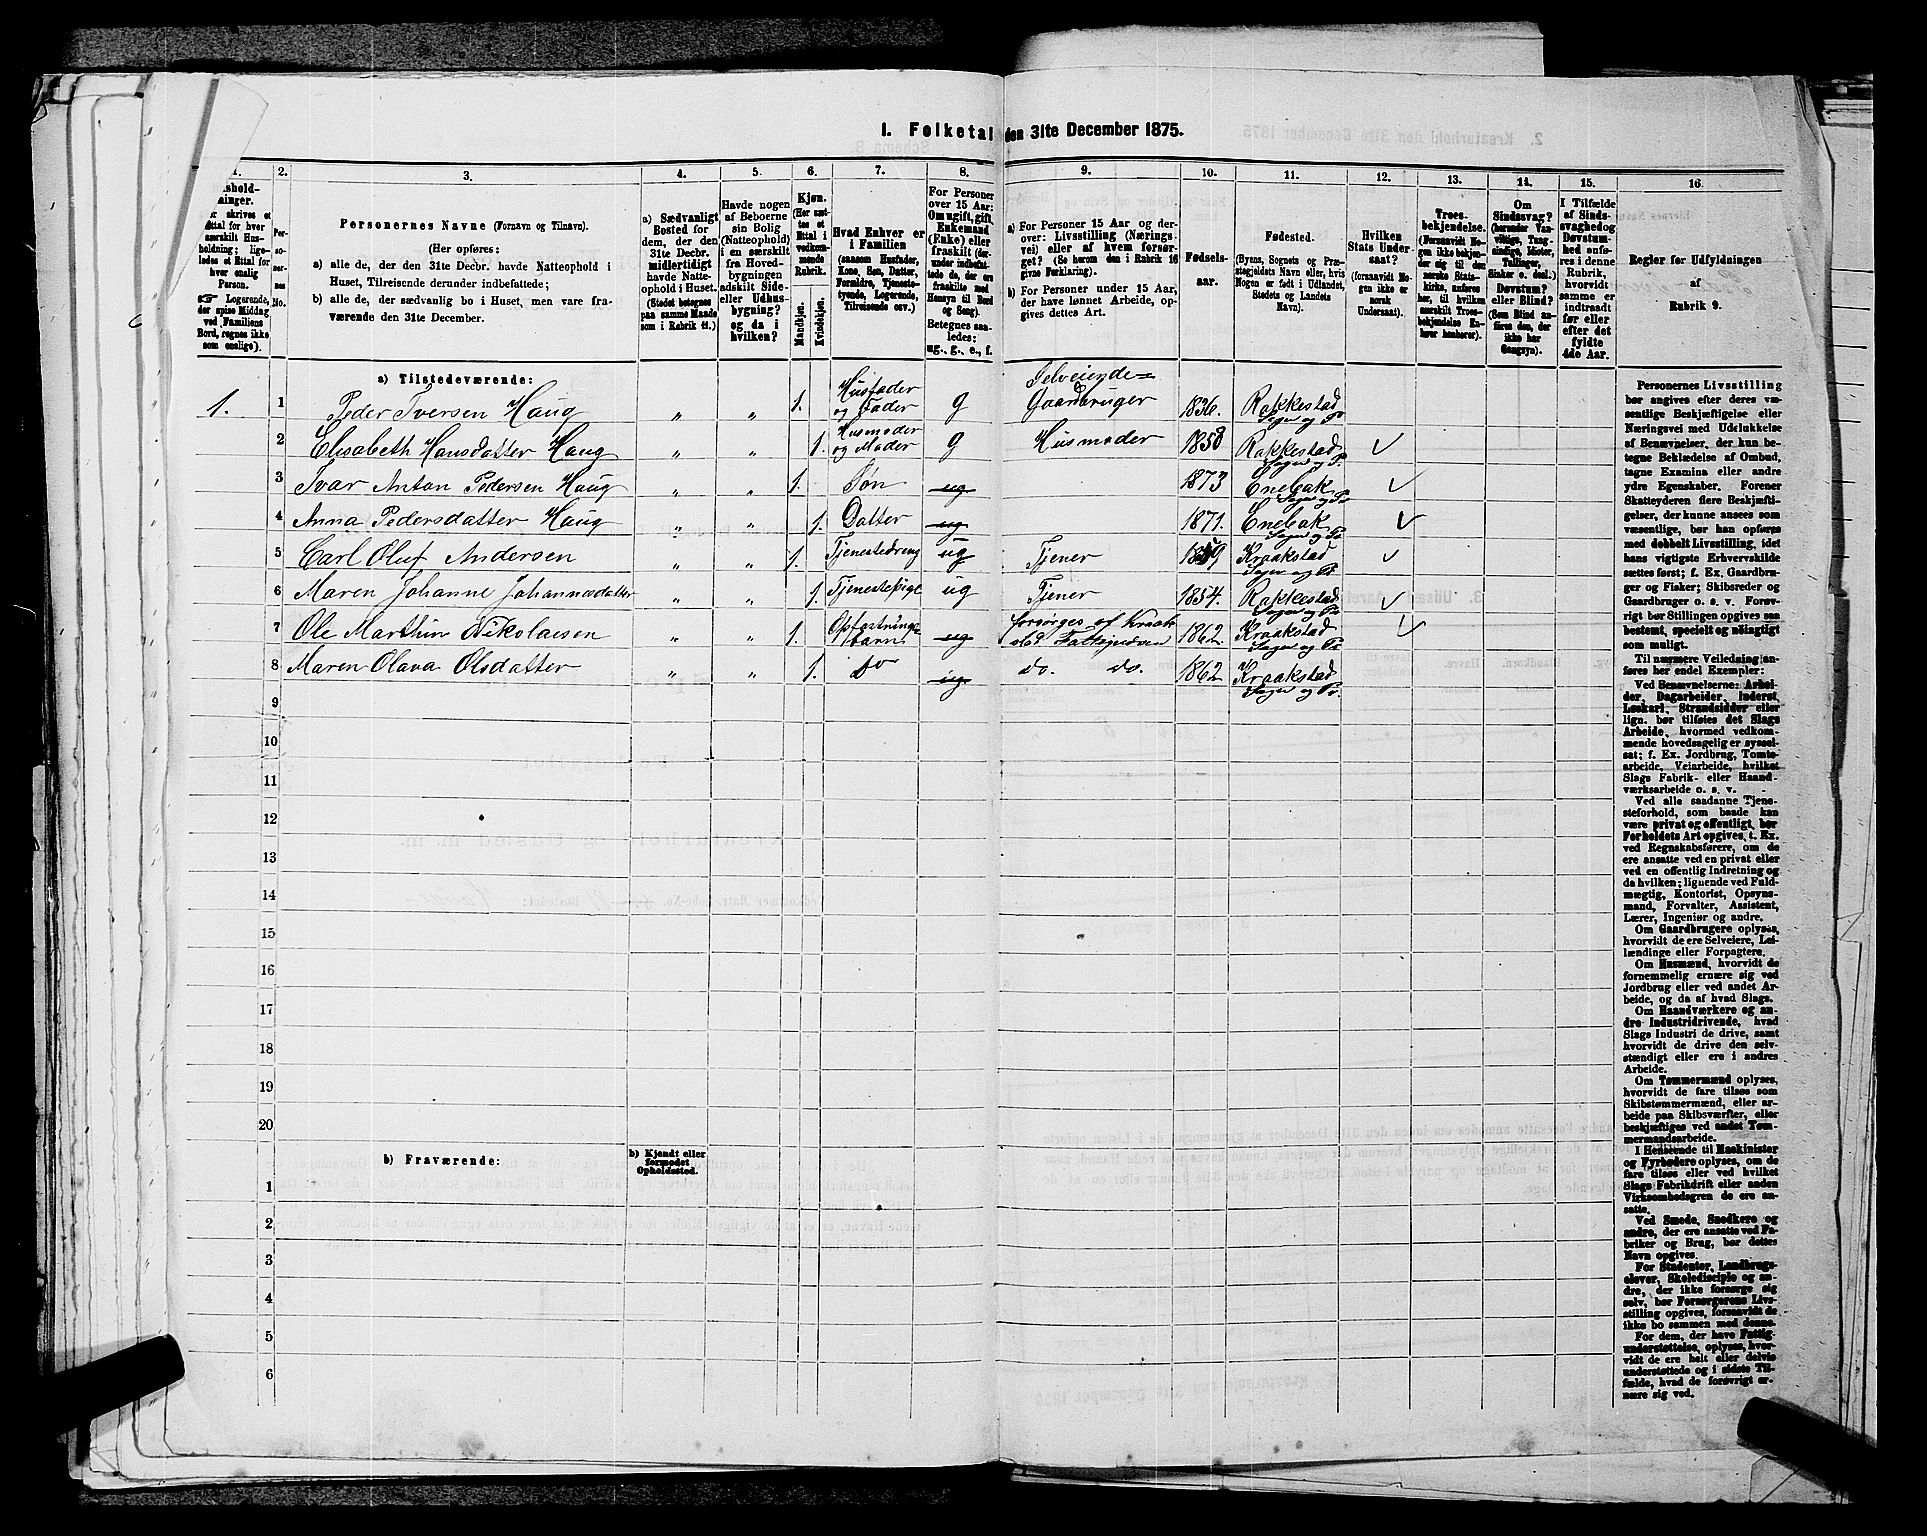 1. Folketal den 31te December 1875.
2. 3. 4. 5. 6. 7. 8. 9. 10. 11. 12. 13. 14. 15. 16.
Personernes Navne (Fornavn og Tilnavn).
(Her opføres:
a) alle de, der den 31te Decbr. havde Natteophold i
Huset, Tilreisende derunder indbefattede;
b) alle de, der sædvanlig bo i Huset, men vare fra-
værende den 31te December.
a) Sædvanligt
Bosted for
dem, der den
31te Decbr.
midlertidigt
havde Natte-
ophold i Huset.
(Stedet betegnes
paa samme Maade
som i Rubrik 11.)
Havde nogen
af Beboerne
sin Bolig
(Natteophold)
i en særskilt
fra Hoved-
bygningen
adskilt Side-
eller Udhus-
bygning?
og da i
hvilken?
Kjøn.
(Her sæt-
tes et
Ettal i
vedkom-
mende
Rubrik.
Mandkjøn.
Kvindekjøn.
Hvad Enhver er
i Familien
(saasom Husfader,
Kone, Søn, Datter,
Forældre, Tjeneste-
tyende, Logerende,
Tilreisende osv.)
For Personer
over 15 Aar:
Om ugift, gift,
Enkemand
(Enke) eller
fraskilt
Betegnes saa-
ledes:
ug., g., e., f.
a) For Personer 15 Aar og der-
over: Livsstilling (Nærings-
vei) eller af hvem forsør-
get? (Se herom den i Rubrik 16
givne Forklaring).
b) For Personer under 15 Aar,
der have lønnet Arbeide, op-
gives dettes Art.
Fødsels-
aar.
Fødested.
(Byens, Sognets og Præste-
gjeldets Navn eller, hvis
Nogen er født i Udlandet,
Stedets og Landets
Navn).
Hvilken
Stats Under-
saat?
(forsaavidt No-
gen ikke er
norsk
Undersaat).
Troes-
bekjendelse.
Om
Sindssvag?
Døvstum?
eller Blind?
I Tilfælde
af Sinds-
svaghed og
Døvstum-
hed anfø-
res i denne
Rubrik,
hvorvidt
samme er
indtraadt
før eller
efter det
fyldte
4de Aar.
Regler før Udfyldningen
af
Rubrik 9.
a) Tilstedeværende:
1. 1 Peder Iversen Haug „ „ 1. Husfader og Fader g Selveiende= Gaardbruger 1836. Rakkestad Sogn og Pr
2 Elisabeth Hansdatter Haug „ „ 1. Husmoder og Moder g Husmoder 1850 Rakkestad Sogn og Pr.
3 Ivar Anton Pedersen Haug „ „ 1. Søn ug 1873 Enebak Sogn og Pr
4 Anna Pedersdatter Haug „ „ 1. Datter ug 1871. Enebak Sogn og Pr
5 Carl Oluf Andersen „ „ 1. Tjenestedreng ug Tjener Kraakstad Sogn og Pr
6 Maren Johanne Johannesdatter „ „ 1. Tjenestepige ug Tjener 1854. Rakkestad Sogn og Pr
7 Ole Marthin Nikolaisen „ „ 1. Opfostrings- barn ug forsørges af Kraak- stad Fattigvæsen 1862 Kraakstad Sogn og Pr
8 Maren Olava Olsdatter „ „ 1. do ug do. do. 1862 Kraakstad Sogn og Pr.
9
10
11
12
13
14
15
16
17
18
19
20
b) Fraværende:
b) Kjendt eller
formodet
Opholdssted.
1
2
3
4
5
6
Personernes Livsstilling
bør angives efter deres væ-
sentlige Beskjæftigelse eller
Næringsvei med Udelukkelse
af Benævnelser, der kun be-
tegne Beklædelse af Ombud,
tagne Examina eller andre
ydre Egenskaber. Forener
Skatteyderen flere Beskjæfti-
gelser, der kunne ansees som
væsentlige, bør han opføres
med dobbelt Livsstilling, idet
hans vigtigste Erhvervskilde
sættes først; f. Ex. Gaardbru-
ger og Fisker; Skibsreder og
Gaardbruger o. s. v. Forøv-
rigt bør Stillingen opgives saa
bestemt, specielt og nøiagtigt
som muligt.
Til nærmere Veiledning an-
føres her endel Exempler:
Ved Benævnelserne: Arbei-
der, Dagarbeider, Inderst,
Løskarl, Strandsidder eller
lign. bør tilføies det Slags
Arbeide, hvormed vedkom-
mende hovedsagelig er syssel-
sat; f. Ex. Jordbrug, Tomte-
arbeide, Veiarbeide, hvilket
Slags Fabrik- eller Haand-
værksarbeide o. s. v.
Ved alle saadanne Tjene-
steforhold, som baade kan
være privat og offentligt, bør
Forholdets Art opgives, t. Ex.
ved Regnskabsførere, om de
ere ansatte ved en privat eller
ved en offentlig Indretning og
da hvilken; lignende ved Fuld-
mægtig, Kontorist, Opsyns-
mand, Forvalter, Assistent,
Lærer, Ingeniør og andre.
Om Gaardbrugere oplyses,
hvorvidt de ere Selveiere, Lei-
lændinge eller Forpagtere.
Om Husmænd, hvorvidt de
fornemmelig ernære sig ved
Jordbrug eller ved andet Ar-
beide, og da af hvad Slags.
Om Haandværkere og an-
dre Industridrivende, hvad
Slags Industri de drive, samt
hvorvidt de drive den selv-
stændigt eller ere i andres
Arbeide.
Om Tømmermænd oplyses,
hvorvidt de fare tilsøs som
Skibstømmermænd, eller ar-
beide paa Skibsværfter, eller
beskjæftiges ved andet Tøm-
mermandsarbeide.
I Henseende til Maskinister
og Fyrbødere oplyses, om de
fare tilsøs eller ved hvilket
Slags Fabrikdrift eller anden
Virksomhedsgren de ere an-
satte.
Ved Smede, Snedkere og
andre, der ere ansatte ved Fa-
briker og Brug, bør dettes
Navn opgives.
For Studenter, Landbrugs-
elever, Skoledisciple og an-
dre, der ikke forsørge sig
selv, bør Forsørgerens Livs-
stilling opgives, forsaavidt de
ikke bo sammen med denne.
For dem, der have Fattig-
understøttelse, oplyses, hvor-
vidt de ere helt eller delvis
understøttede og i sidste Til-
fælde, hvad de forøvrigt er-
nære sig ved.